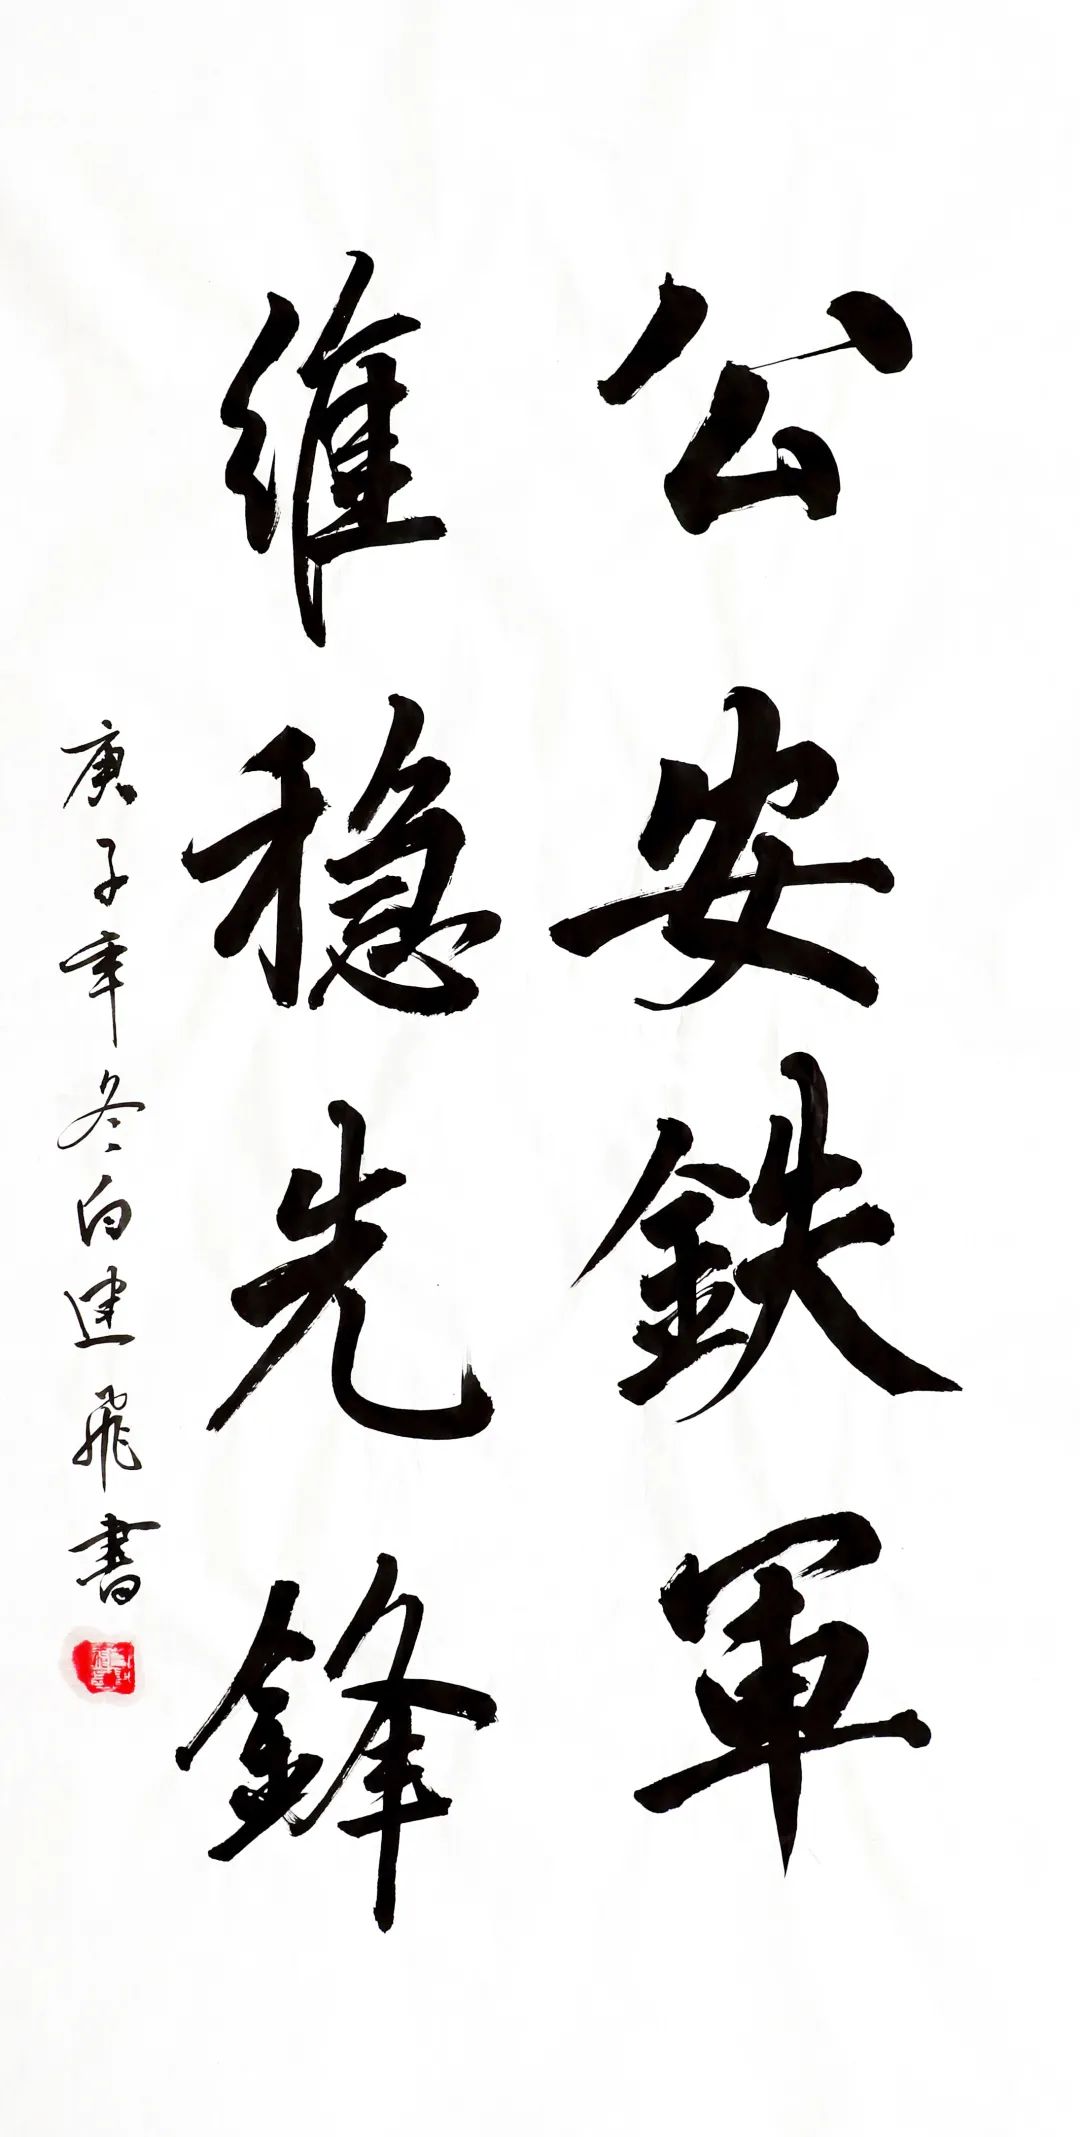 公安鉄軍
維稳先鋒
庚子年冬白建飛書